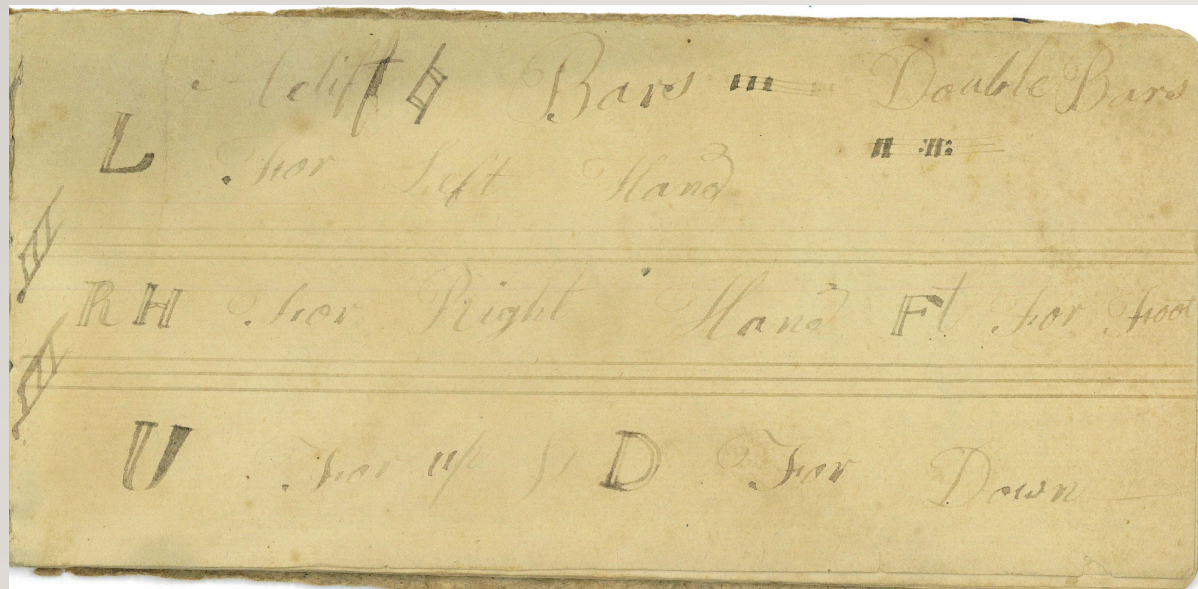 A cliff Bars Double Bars
L For Left Hand
R H For Right Hand Ft For Foot
U For up D For Down